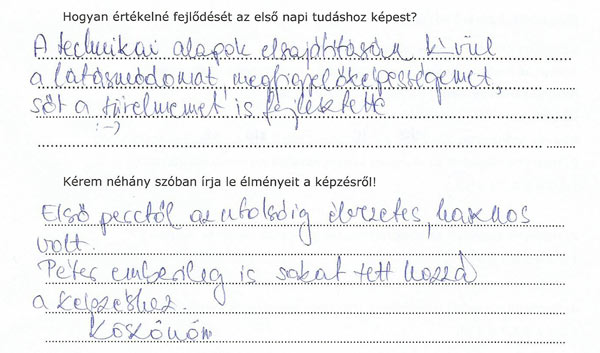 Hogyan értékelné fejlődését az első napi tudáshoz képest?
A technikai alapok elsajátításán kívül
a látásmódomat, megfigyelőképességemet,
sőt a türelmemet is fejlesztette
:-)
Kérem néhány szóban írja le élményeit a képzésről!
Első perctől az utolsóig élvezetes, hasznos
volt.
Péter emberileg is sokat tett hozzá
a képzéshez.
Köszönöm